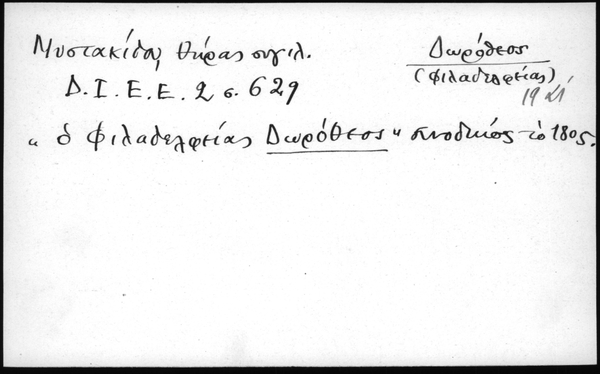 Μυστακίδου, Θύρας σιγιλ.
Δ.Ι.Ε.Ε. 2 σ. 629
Δωρόθεος
(Φιλαδελφείας)
19
" ὁ Φιλαδελφείας Δωρόθεος " συνοδικός τὸ 1805.